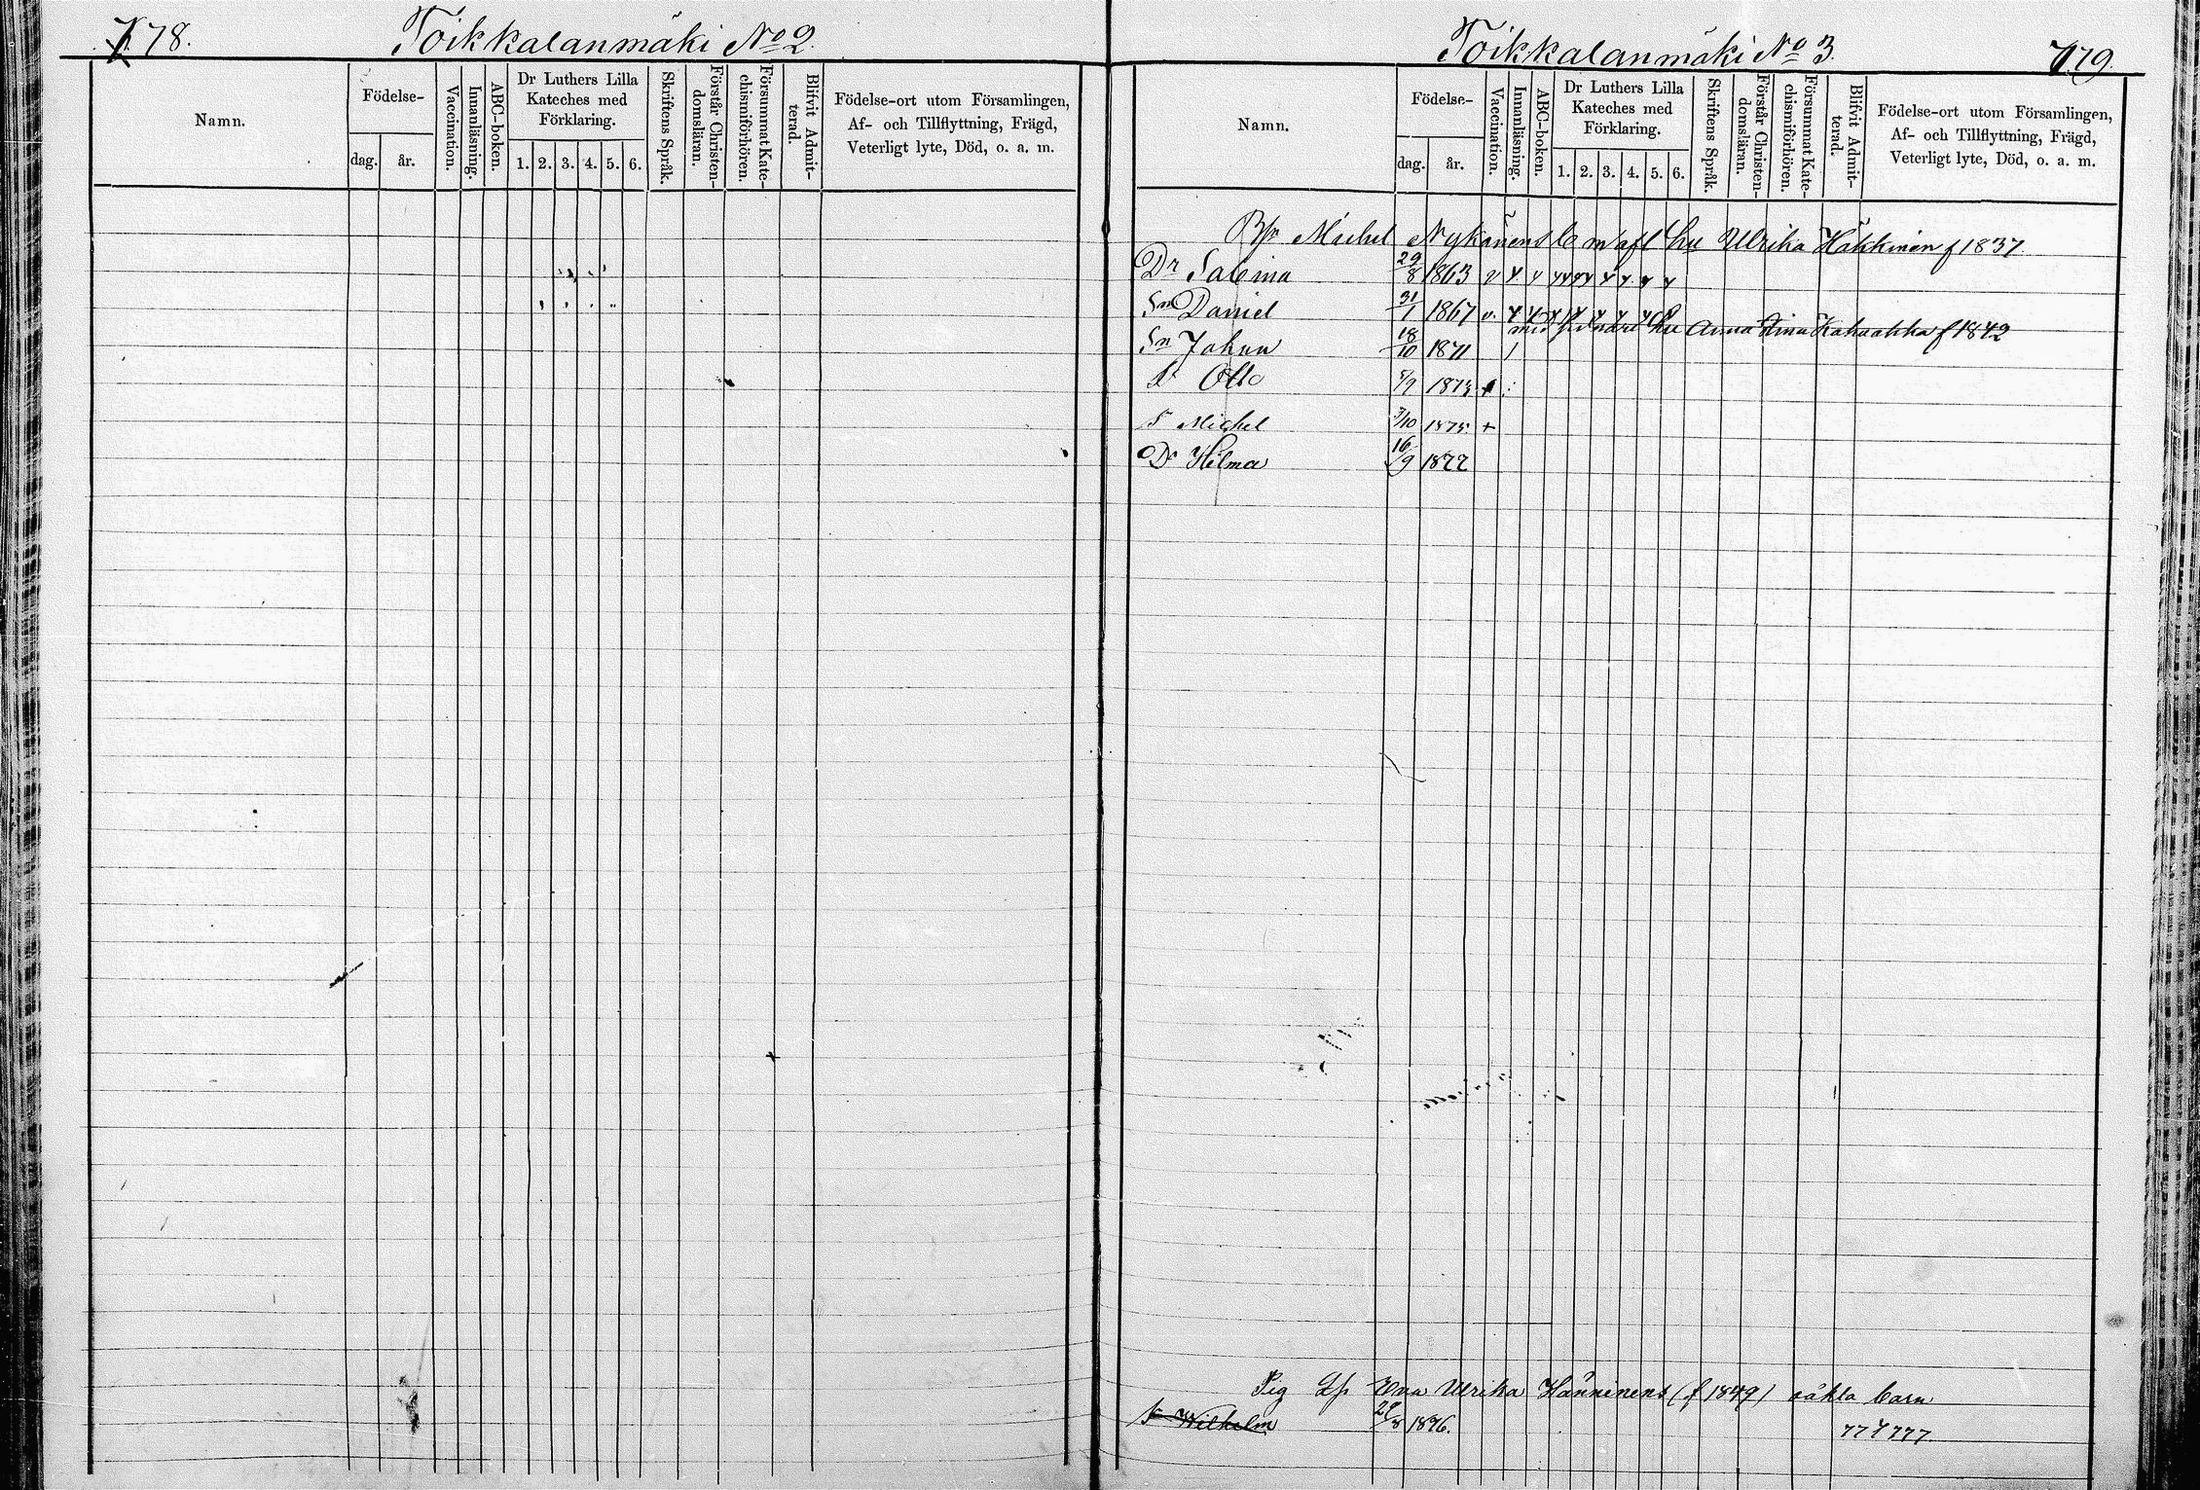 78.
Toikkalanmäki No 2.
Namn.
Födelse-
dag.
år.
Vaccination.
Innanläsning.
ABC-boken.
Dr Luthers Lilla
Kateches med
Förklaring.
1. 2. 3. 4. 5. 6.
Skriftens Språk.
Förstår Christen-
domsläran.
Försummat Kate-
chismiförhören.
Blifvit Admit-
terad.
Födelse-ort utom Församlingen,
Af- och Tillflyttning, Frägd,
Veterligt lyte, Död, o. a. m.
Toikkalanmäki No 3.
779.
Namn.
Födelse-
dag.
år.
Vaccination.
Innanläsning.
ABC-boken.
Dr Luthers Lilla
Kateches med
Förklaring.
1. 2. 3. 4. 5. 6.
Skriftens Språk.
Förstår Christen-
domsläran.
Försummat Kate-
chismiförhören.
Blifvit Admit-
terad.
Födelse-ort utom Församlingen,
Af- och Tillflyttning, Frägd,
Veterligt lyte, Död, o. a. m.
Michel Nykänens b m afl hu Ulrika Häkkinen f 1837
Dr Sabina 29/8 1863
Sn Daniel 31/1 1867
med hu Anna Stina f 1842
Sn Johan 18/10 1871
Otto 5/9 1873
S Michel 3/10 1875
Dr Hilma 16/9 1877
Pig Ulrika Hänninens (f 1849) oäkta barn
S Wilhelm 29/8 1876. 777777